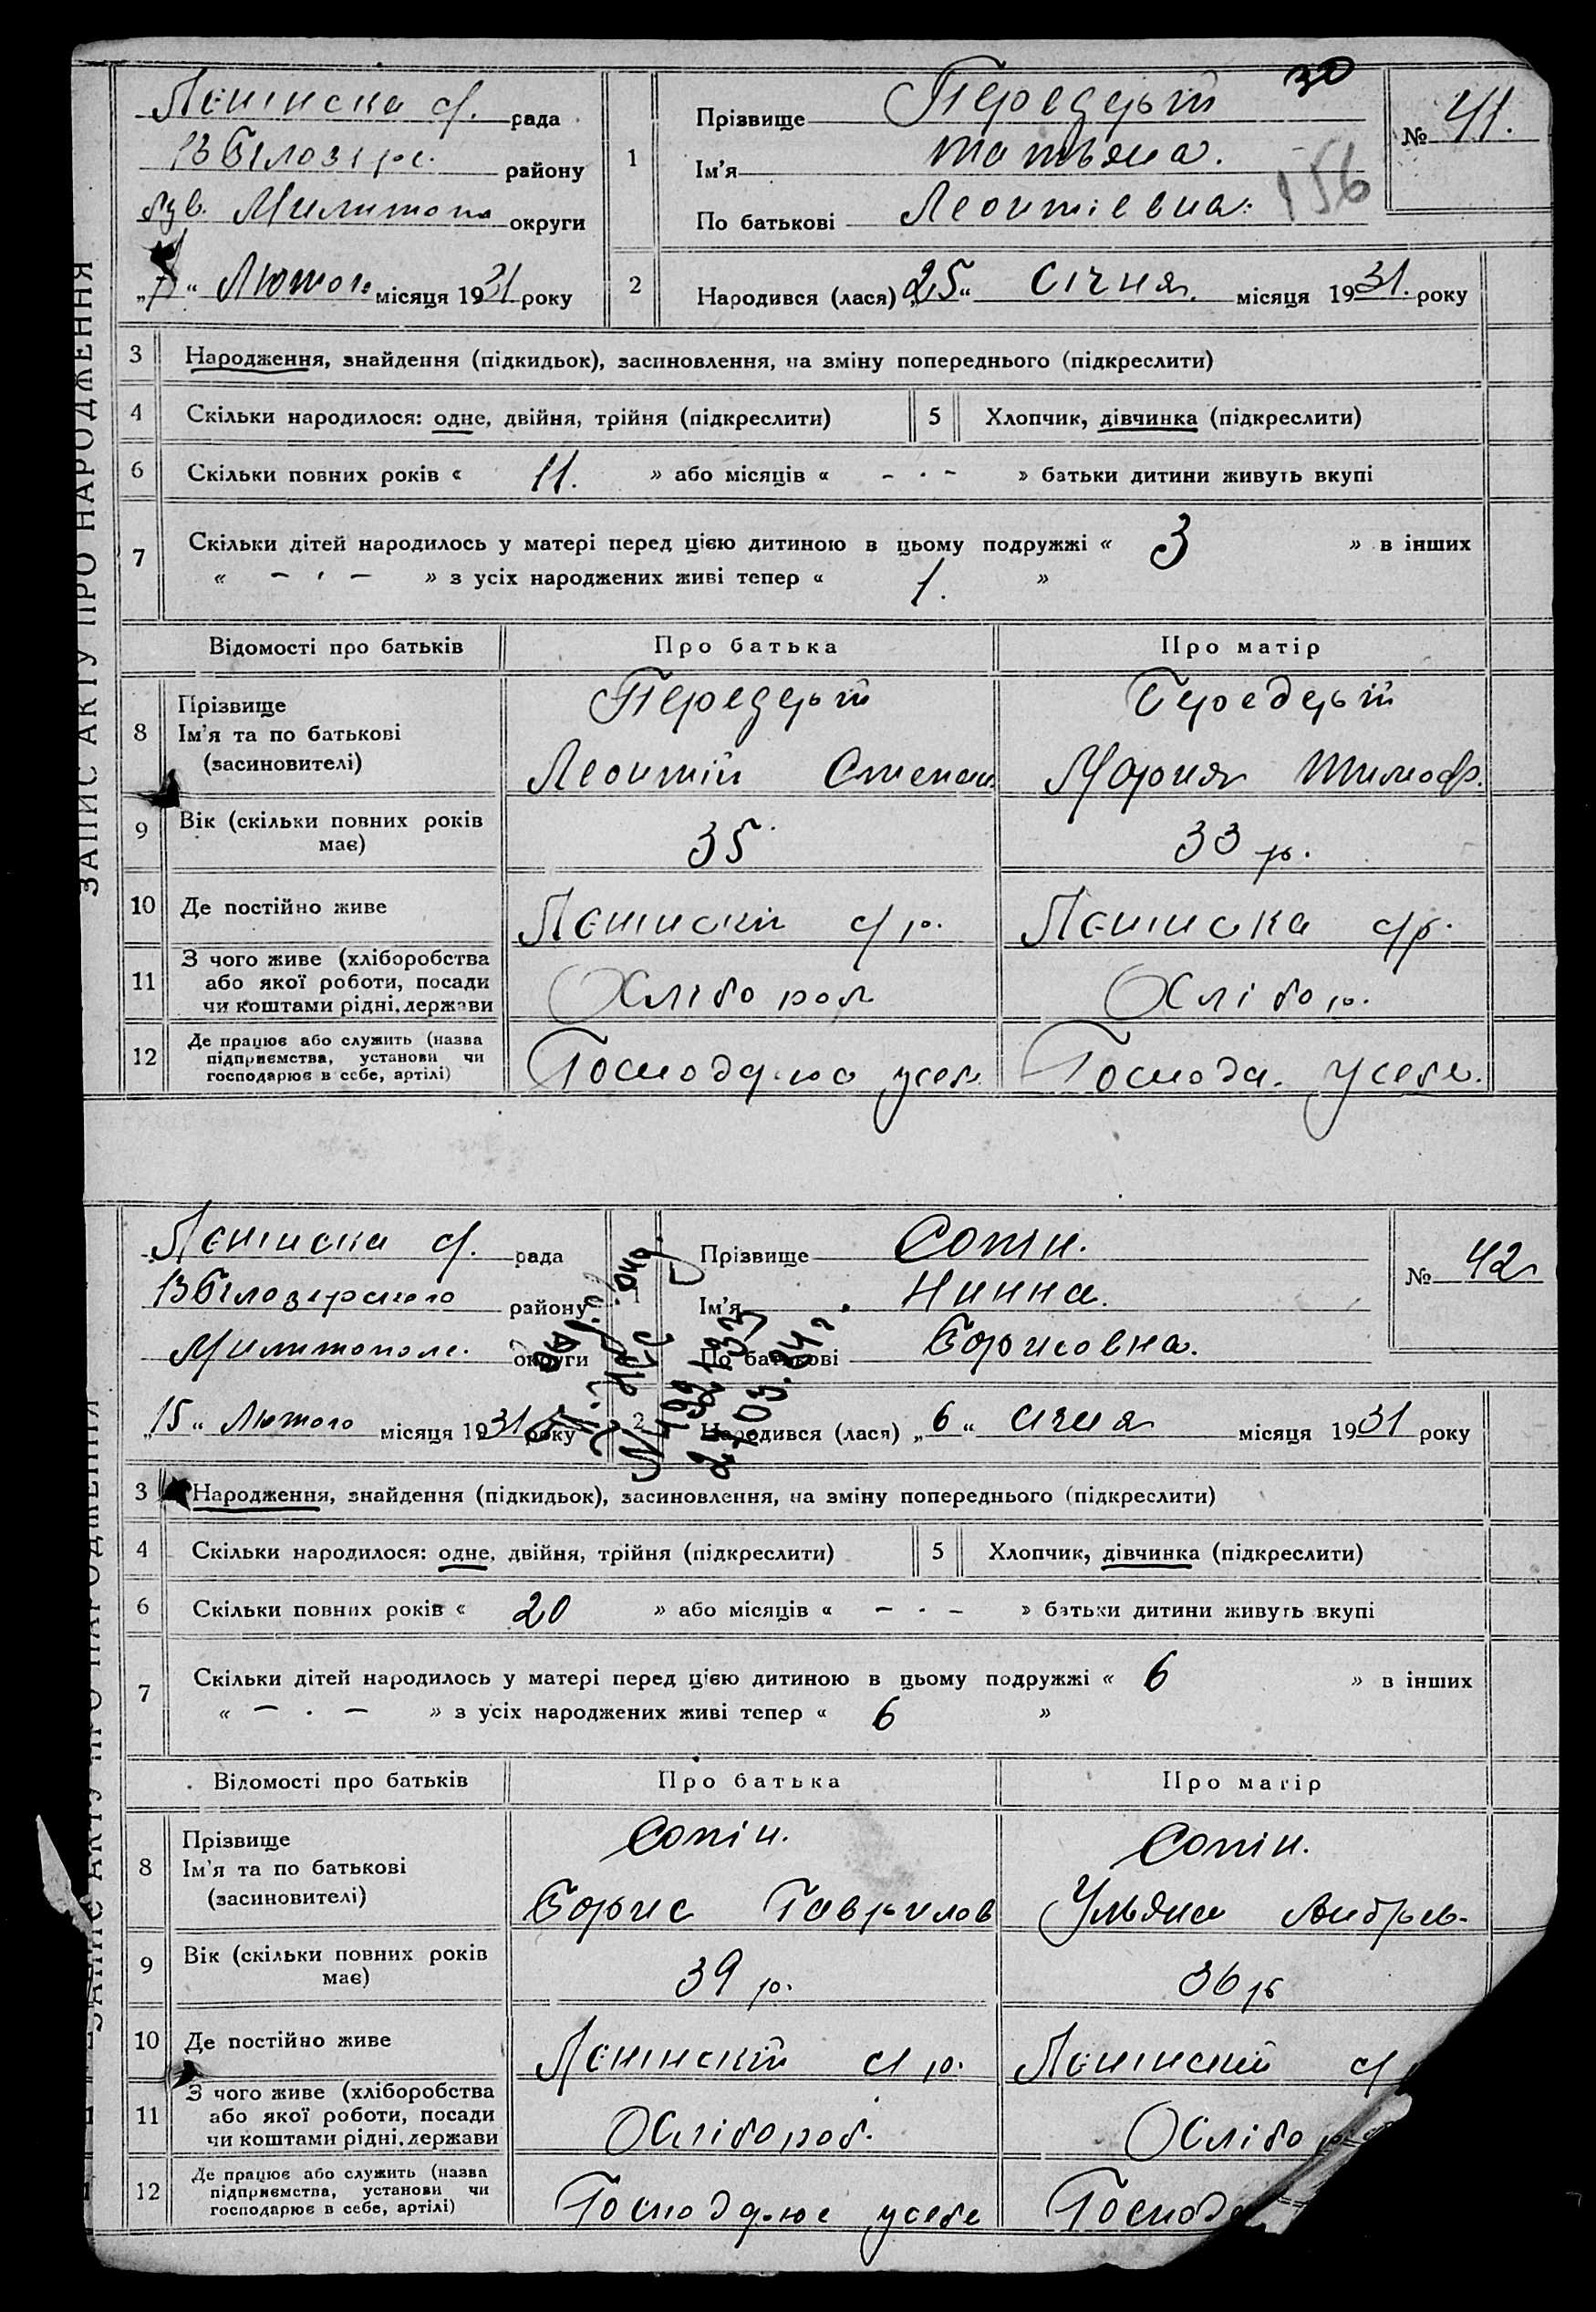 ЗАПИС АКТУ ПРО НАРОДЖЕННЯ
30
Ленинска с/. рада
В Білозірс. району
був. Милитопа округи
„ “ Лютого місяця 1931 року
1
Прізвище Передерій
Ім’я татьяна.
По батькові Леонтіевна.
156
№ 41.
2
Народився (лася) „25“ січня. місяця 1931. року
3 Народження, знайдення (підкидьок), засиновлення, на зміну попереднього (підкреслити)
4 Скільки народилося: одне, двійня, трійня (підкреслити) 5 Хлопчик, дівчинка (підкреслити)
6 Скільки повних років « 11. » або місяців « – · – » батьки дитини живуть вкупі
7 Скільки дітей народилось у матері перед цією дитиною в цьому подружжі « 3 » в інших
« – · – » з усіх народжених живі тепер « 1. »
Відомості про батьків Про батька Про матір
8 Прізвище
Ім’я та по батькові
(засиновителі)
Передерій
Леонтій Степан.
Передерій
Мария Тимоф.
9 Вік (скільки повних років
має)
35
33 р.
10 Де постійно живе Ленинскій с/р. Ленинска с/р.
11 З чого живе (хліборобства
або якої роботи, посади
чи коштами рідні, держави
Хлібороб
Хлібор.
12 Де працює або служить (назва
підприємства, установи чи
господарює в себе, артілі)
Господарює усебе
Господа. усебе.
ЗАПИС АКТУ ПРО НАРОДЖЕННЯ
Ленинска с/. рада
В Білозірского району
Милитополе. округи
„15“ Лютого місяця 1931 року
1
Прізвище Сопін.
Ім’я Нинна.
По батькові Борисовна.
№ 42
2
Народився (лася) „6“ січня місяця 1931 року
3 Народження, знайдення (підкидьок), засиновлення, на зміну попереднього (підкреслити)
4 Скільки народилося: одне, двійня, трійня (підкреслити) 5 Хлопчик, дівчинка (підкреслити)
6 Скільки повних років « 20 » або місяців « – · – » батьки дитини живуть вкупі
7 Скільки дітей народилось у матері перед цією дитиною в цьому подружжі « 6 » в інших
« – · – » з усіх народжених живі тепер « 6 »
Відомості про батьків Про батька Про матір
8 Прізвище
Ім’я та по батькові
(засиновителі)
Сопін.
Борис Гаврилов
Сопін.
Ульяна Андрев-
9 Вік (скільки повних років
має)
39 р.
36 р
10 Де постійно живе Ленинскій с/р. Ленинский с/
11 З чого живе (хліборобства
або якої роботи, посади
чи коштами рідні, держави
Хлібороб.
Хлібо
12 Де працює або служить (назва
підприємства, установи чи
господарює в себе, артілі)
Господарює усебе
Господа